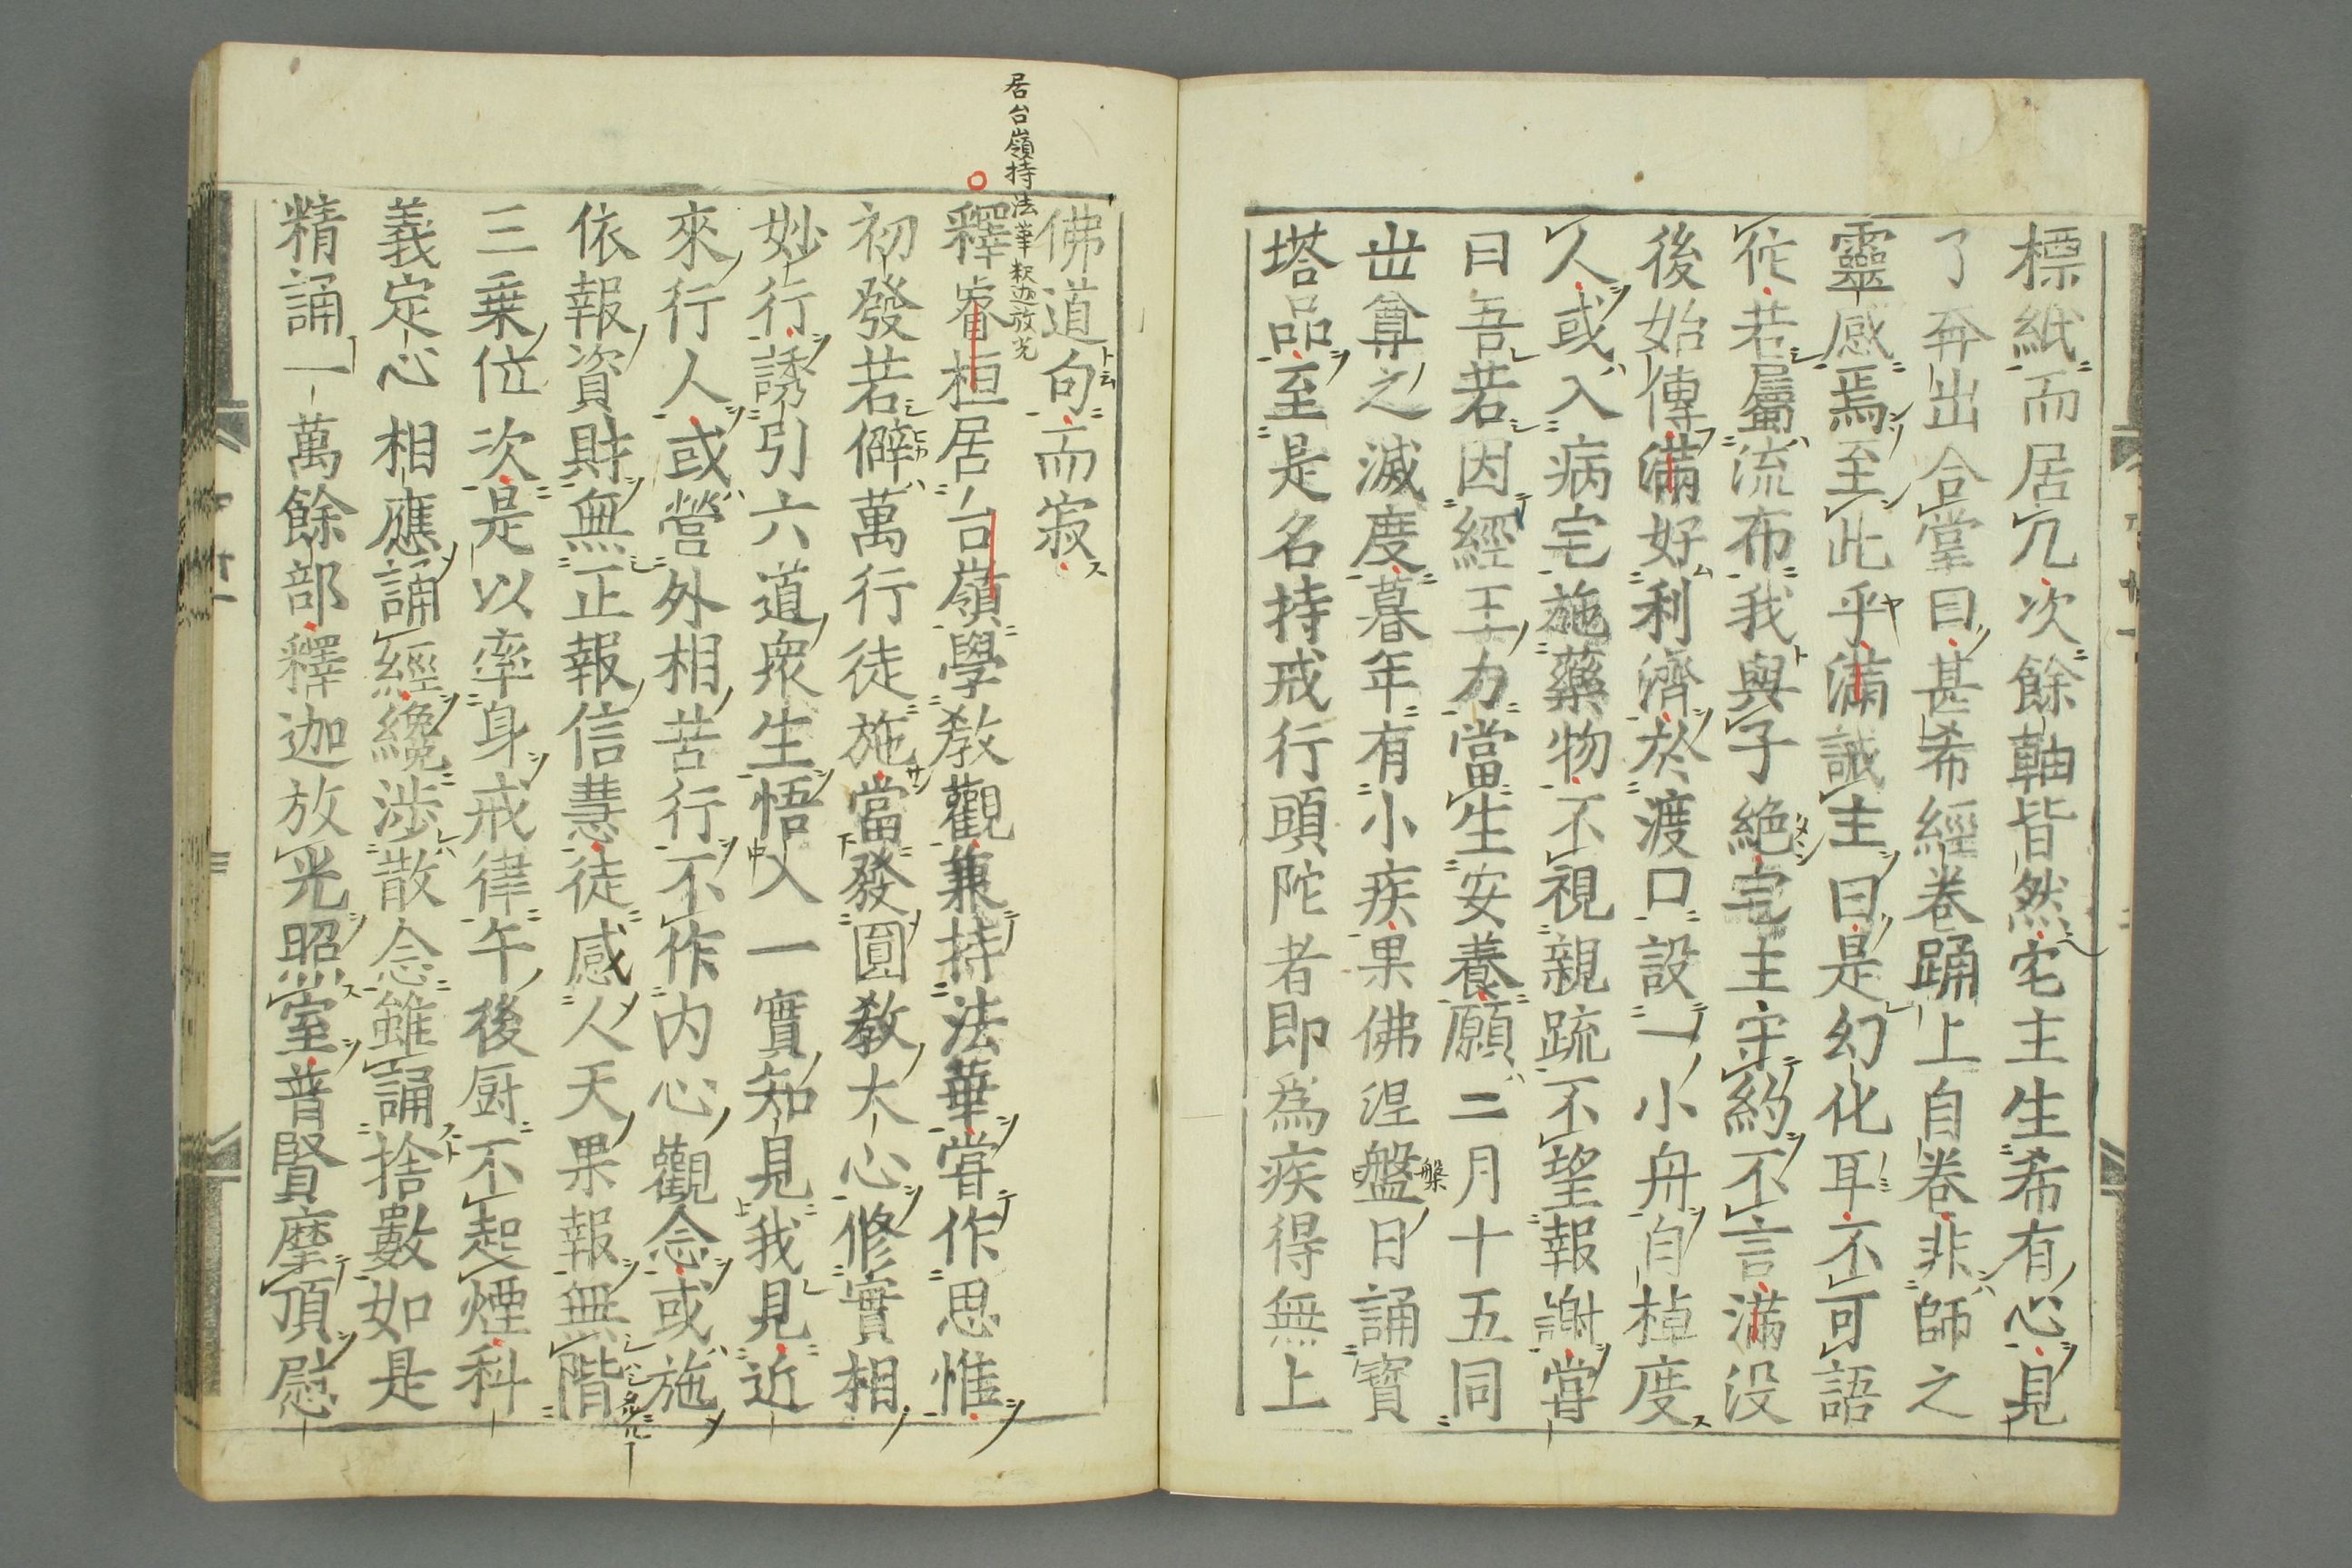 標紙而居几次餘軸皆然宅主生希有心見
了弄出合掌曰甚希經卷踊上自卷非師之
靈感焉至此乎滿誡主曰是幻化耳不可語
他若屬流布我與子絶宅主守約不言滿没
後始傳滿好利濟於渡口設一小舟自棹度
人或入病宅施藥物不視親疏不望報謝甞
曰吾若因經王力當生安養願二月十五同
世尊之滅度暮年有小疾果佛涅盤日誦寳
槃
塔品至是名持戒行頭陀者即爲疾得無上
居台嶺持法華釈迦放光
佛道句而寂
釋睿桓居台嶺學教觀兼持法華甞作思惟
初發若僻萬行徒施當發圓教大心修實相
妙行誘引六道衆生悟入一實知見我見近
來行人或營外相苦行不作内心觀念或施
依報資財無正報信慧徒感人天果報無階
三乗位次是以率身戒律午後厨不起煙科
義定心相應誦經纔渉散念雖誦捨數如是
精誦一萬餘部釋迦放光照室普賢摩頂慰